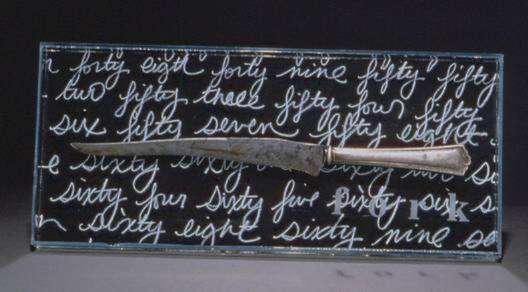 r forty eight forty nine fifty fifty
two fifty three fifty four fifty
six fifty seven fifty eight
e sixty sixty sixty si
sixty four sixty five sixty six s
fork
n sixty eight sixty nine se